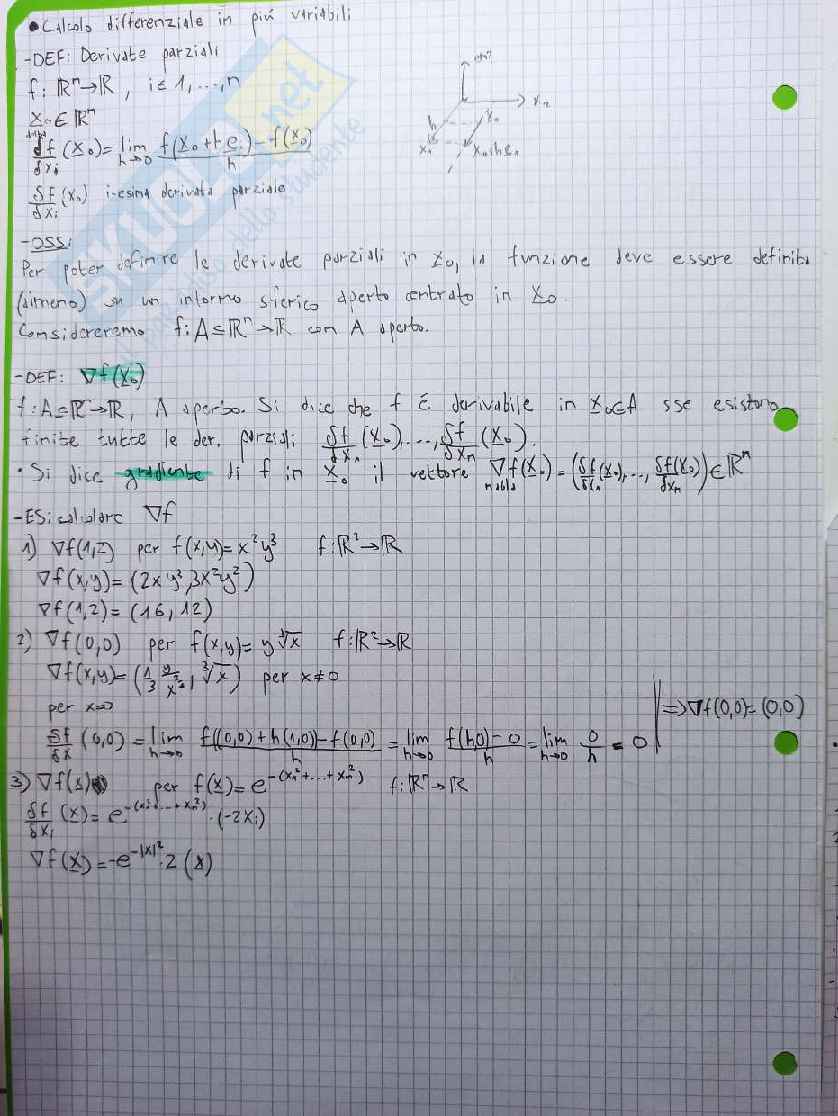 • Calcolo differenziale in più variabili
-DEF: Derivate parziali
f: ℝⁿ→ℝ, i≤1,...,n
x₀∈ℝⁿ
δf/δxᵢ (x₀)= lim h→0 f(x₀+h eᵢ)-f(x₀)/h
δf/δxᵢ (x₀) i-esima derivata parziale
ℝⁿ
xₙ
h
x₀
x₁
x₀+he₁
-OSS:
Per poter definire le derivate parziali in x₀, la funzione deve essere definita
(almeno) su un intorno sferico aperto centrato in x₀.
Considereremo f: A⊆ℝⁿ→ℝ con A aperto.
-DEF: ∇f(x₀)
f: A⊆ℝⁿ→ℝ, A aperto. Si dice che f è derivabile in x₀∈A sse esistono
finite tutte le der. parziali δf/δx₁ (x₀)...,δf/δxₙ (x₀).
• Si dice gradiente di f in x₀ il vettore ∇f(x₀)=(δf/δx₁(x₀),..., δf/δxₙ(x₀))∈ℝⁿ
nabla
-ES: calcolare ∇f
1) ∇f(1,2) per f(x,y)=x²y³ f:ℝ²→ℝ
∇f(x,y)=(2xy³,3x²y²)
∇f(1,2)=(16,12)
2) ∇f(0,0) per f(x,y)= y∛x f:ℝ²→ℝ
∇f(x,y)=(1/3 y/∛x², ∛x) per x≠0
per x=0
δf/δx (0,0)= lim h→0 f((0,0)+h(1,0))-f(0,0)/h = lim h→0 f(h,0)-0/h = lim h→0 0/h = 0 ⇒∇f(0,0)=(0,0)
3) ∇f(x) per f(x)=e^-(x₁²+...+xₙ²) f:ℝⁿ→ℝ
δf/δxᵢ (x)= e^-(x₁²...+xₙ²)·(-2xᵢ)
∇f(x)=-e^-|x|²·2(x)
SKUOLA.net
dello studente